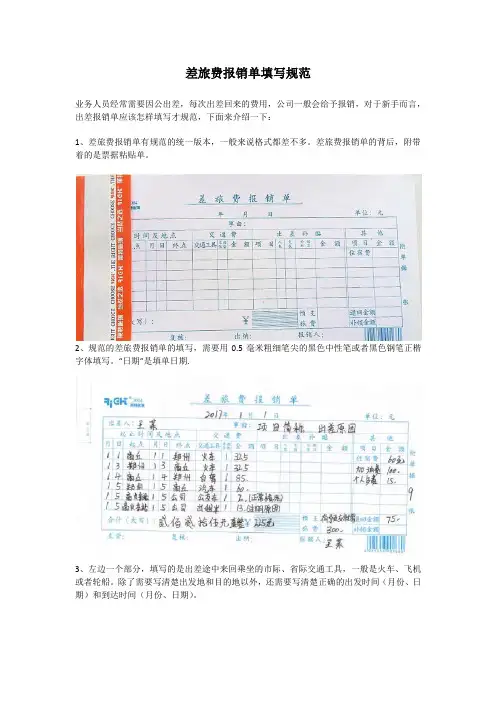 差旅费报销单填写规范
业务人员经常需要因公出差，每次出差回来的费用，公司一般会给予报销，对于新手而言，
出差报销单应该怎样填写才规范，下面来介绍一下：
1、差旅费报销单有规范的统一版本，一般来说格式都差不多。差旅费报销单的背后，附带
着的是票据粘贴单。
差旅费报销单
年 月 日 单位 元
事由：
时间及地点 交通费 出差补贴 其他
点 月 日 终点 交通工具 金额 项目 金额 项目 金额
住宿费
附单据 张
大写)： ¥ 旅费 退回金额
补领金额
复核： 出纳： 报销人：
2、规范的差旅费报销单的填写，需要用 0.5 毫米粗细笔尖的黑色中性笔或者黑色钢笔正楷
字体填写。“日期”是填单日期.
差旅费报销单
2017年 1月 1日 单位：元
王某 事由： 项目简称 出差原因
起止时间及地点 交通费 出差补贴 其他
月 日 起点 月 日 终点 交通工具 金额 项目 金额 项目 金额
1 1 商丘 1 1 郑州 火车 1 32.5 60元
1 3 郑州 1 3 商丘 火车 1 32.5 100.
1 4 商丘 1 4 郑州 1 85. 15.
1 5 1 5 商丘 汽车 1 60.
1 5 1 5 公司 公交车 1 2.
1 5 1 5 公司 出租车 1 13.
附单据 9 张
合计（大写） 贰佰贰拾伍元整 ¥ 225元 旅费 300. 退回金额 75.
补领金额
主管： 复核： 出纳： 报销人： 王某
3、左边一个部分，填写的是出差途中来回乘坐的市际、省际交通工具，一般是火车、飞机
或者轮船。除了需要写清楚出发地和目的地以外，还需要写清楚正确的出发时间（月份、日
期）和到达时间（月份、日期）。